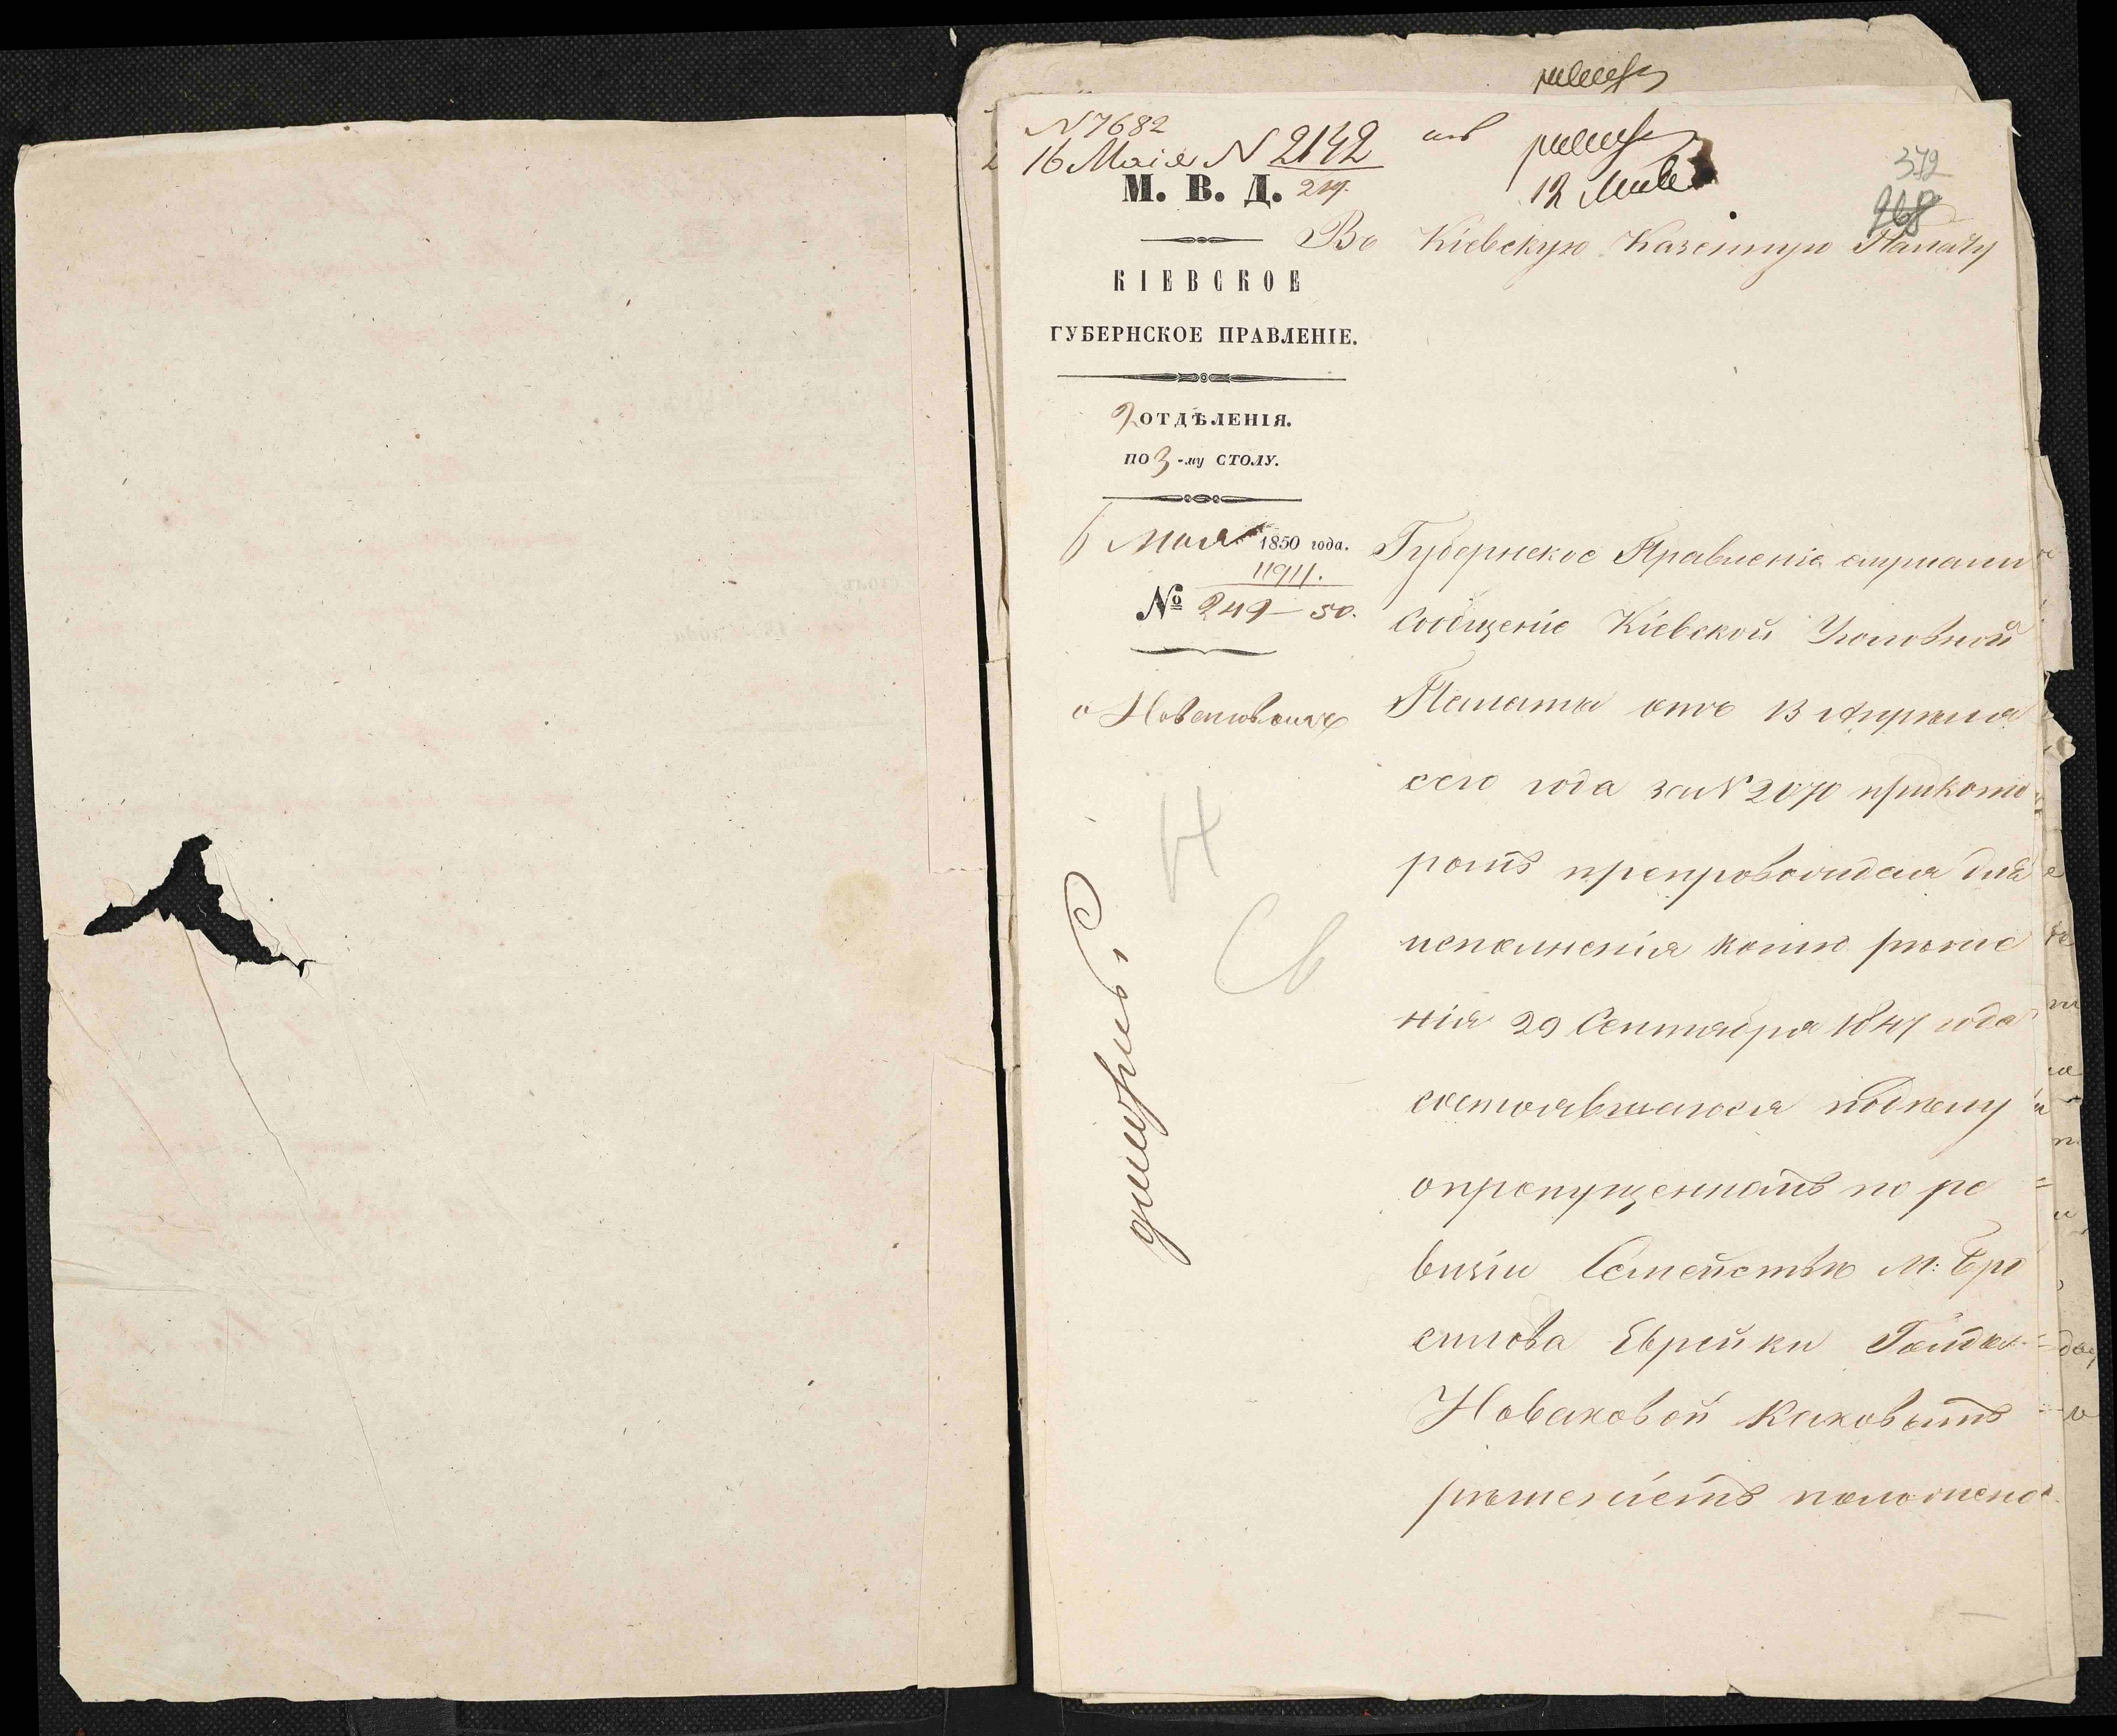 N 7682
16 Маія N 2142
219.
372
268
М. В. Д.
Въ Кіевскую Казенную Палату
КІЕВСКОЕ
ГУБЕРНСКОЕ ПРАВЛЕНІЕ.
2 ОТДѢЛЕНІЯ.
ПО 3-му СТОЛУ.
6 Мая 1850 года.
11911.
№ 249-50.
о Новаковыхъ
Губернское Правленіе слушали
Сообщеніе Кіевской Уголовной
Палаты отъ 13 Апрѣля
сего года за N 2070 прикото
ромъ препровождая для
исполненія копію рѣше
нія 29 Сентября 1847 года
состоявшагося подѣлу
опропущенномъ по ре
визіи Семействѣ М:
Еврейки
Новаковой каковымъ
рѣшеніемъ положено
Св